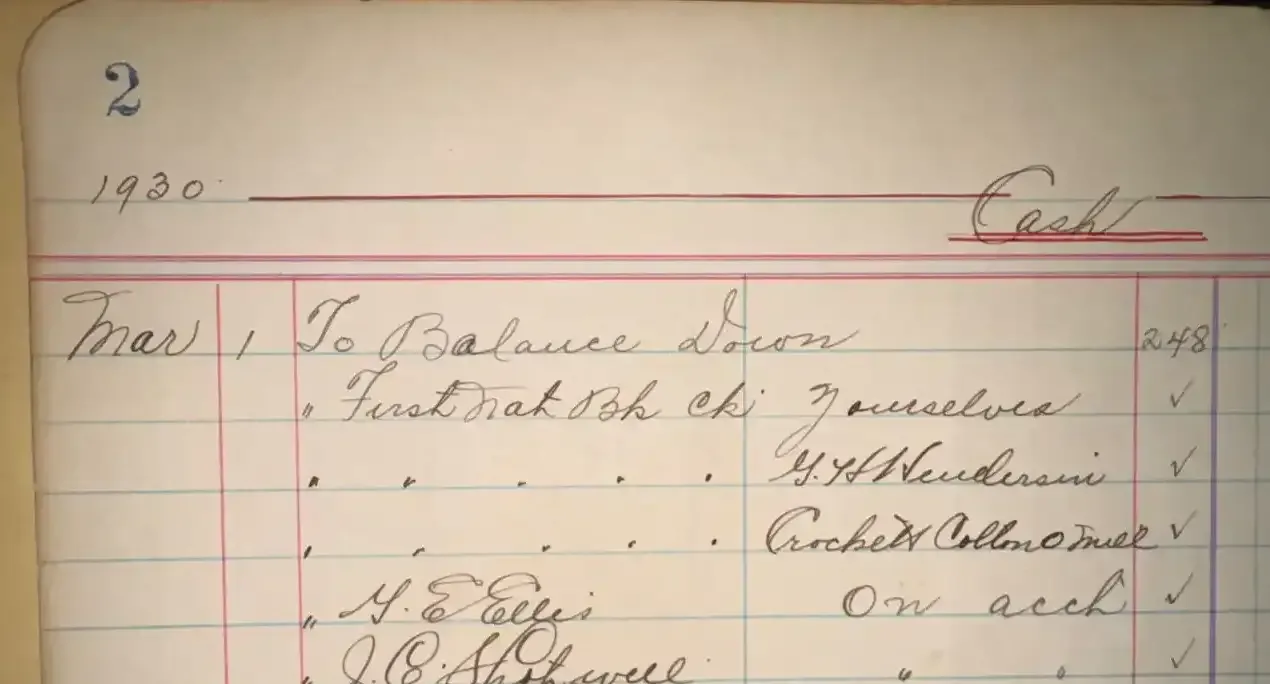 2
1930
Cash
Mar 1 To Balance Down 248
" First Nat Bk ck Yourselves ✓
" " " " " G. H Hendersin ✓
" " " " " Crockett Cotton O Mill ✓
" G. E Ellis On acct ✓
" J. E. Shotwell " " ✓